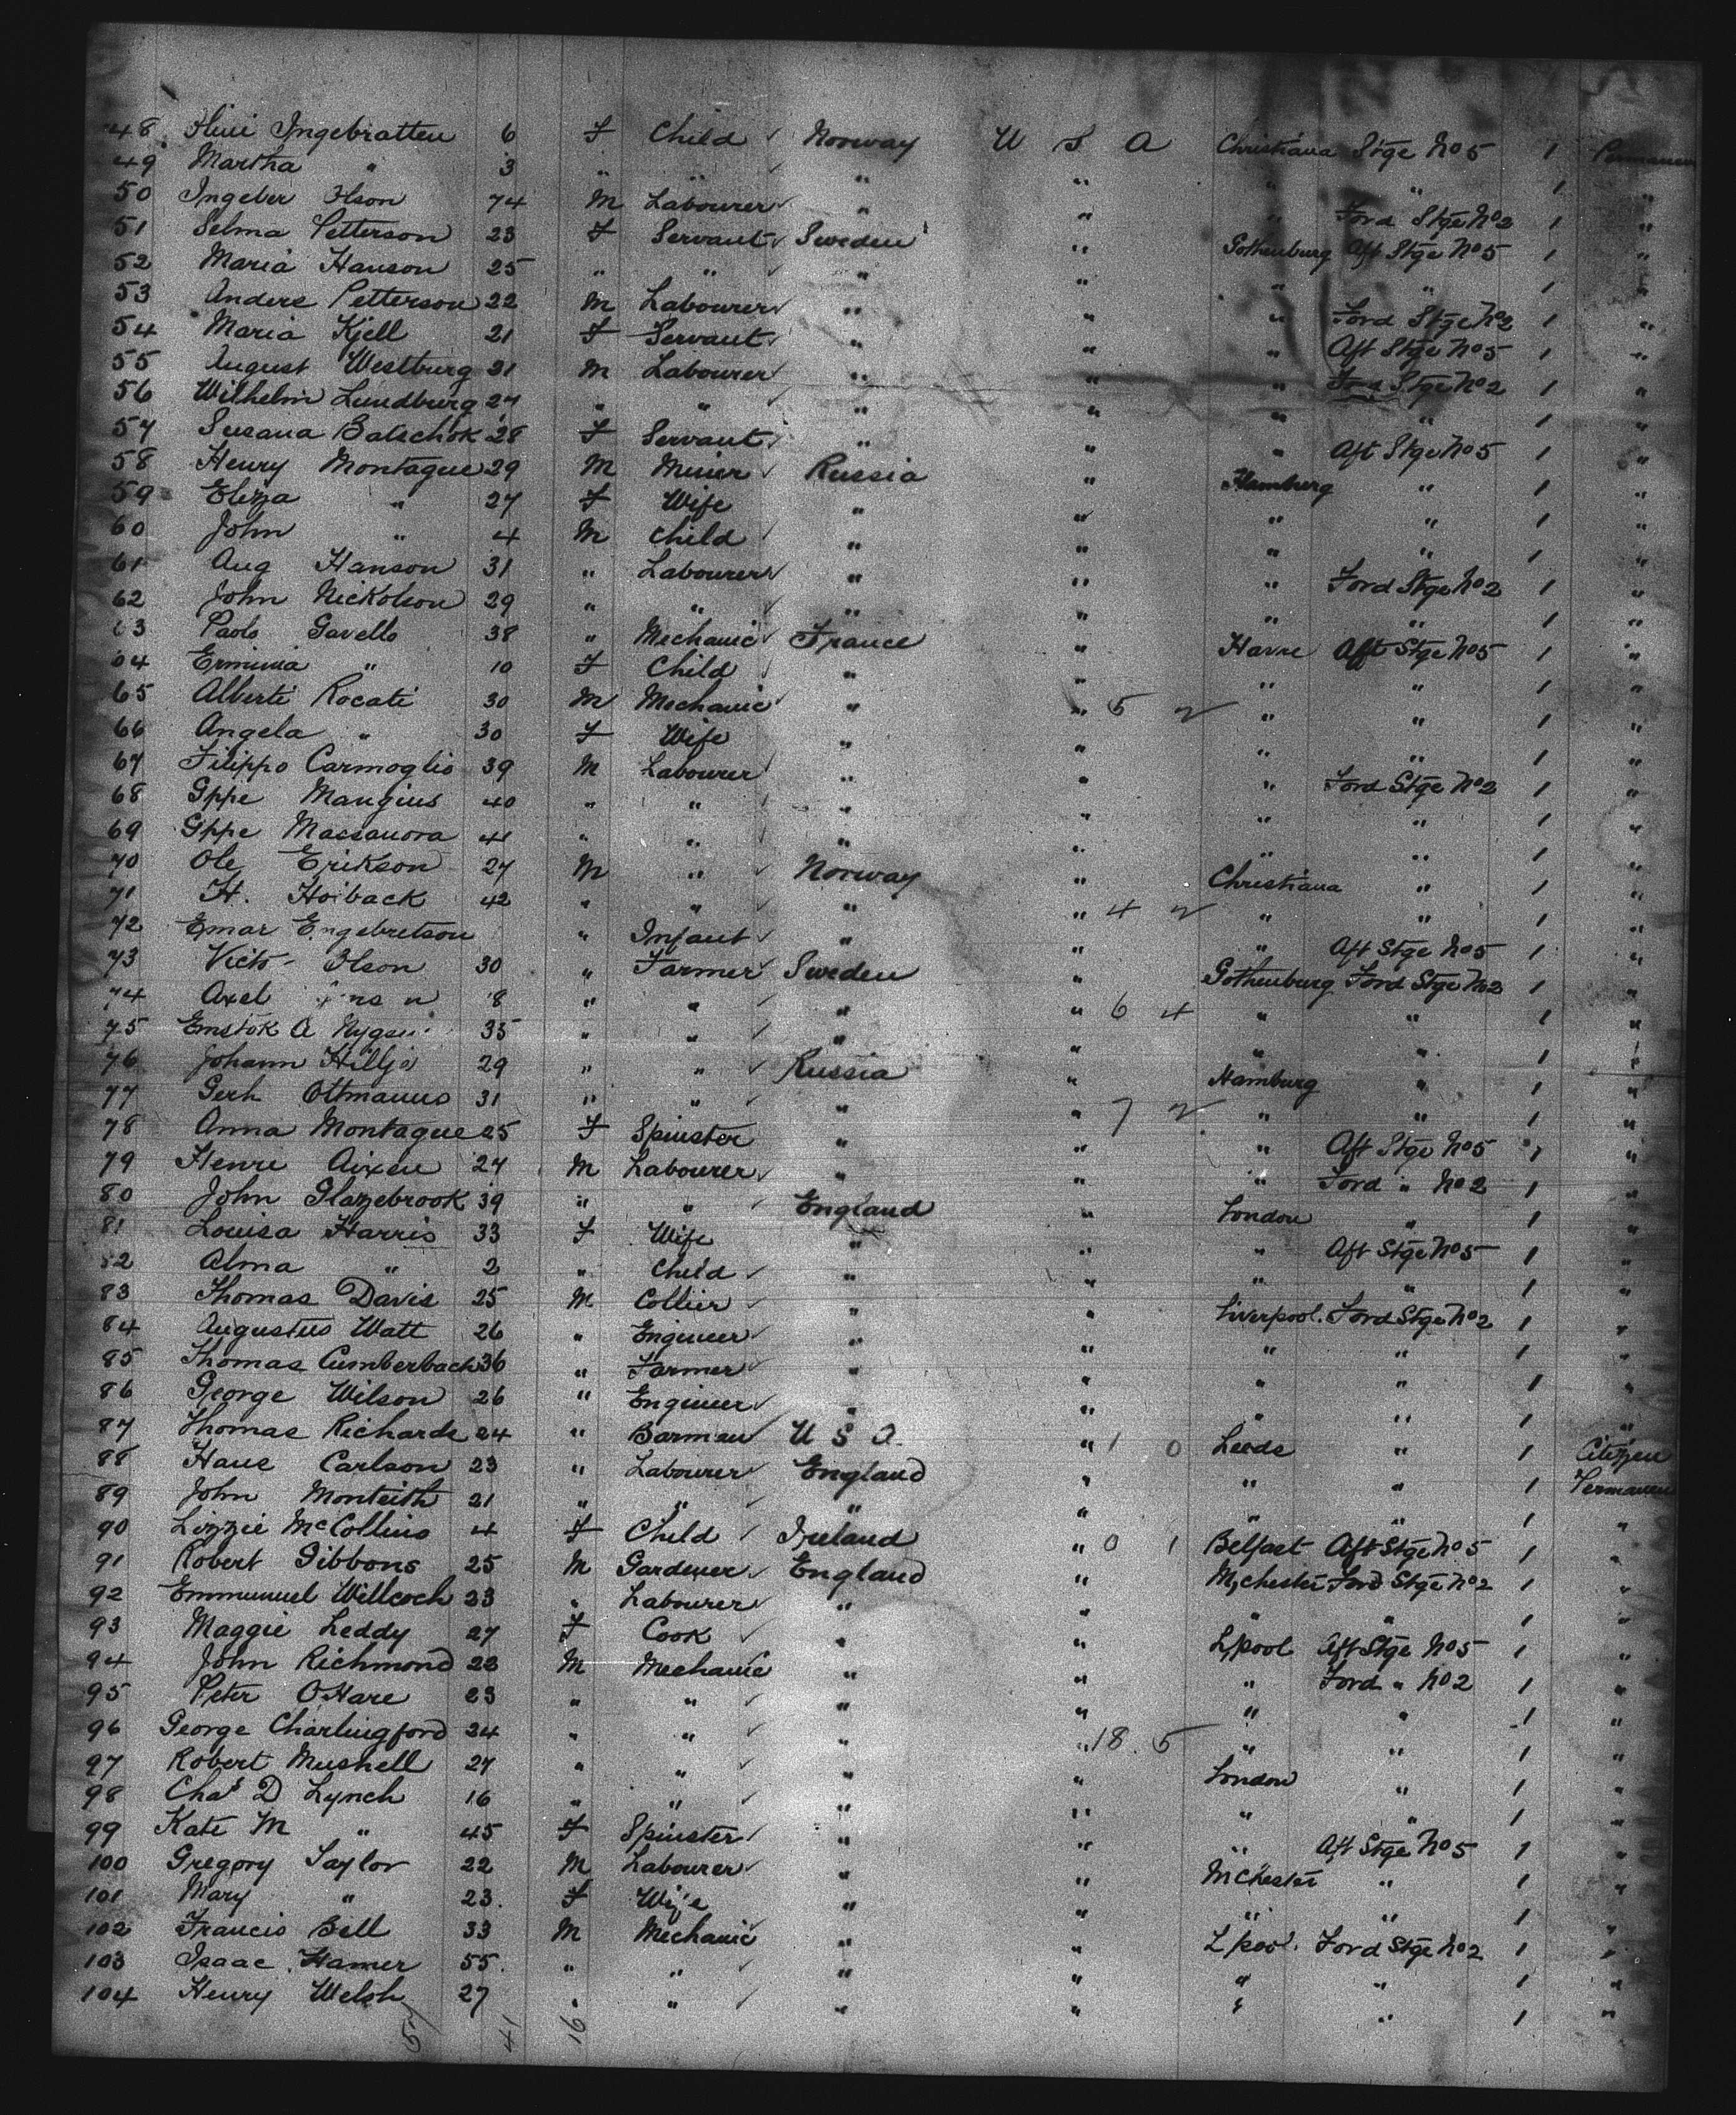 48 Ingebratten 6 F Child Norway U S A Christiana Stge No 5 1 Permanen
49 Martha " 3 " " " " " " 1 "
50 Ingeber Olson 74 M Labourer " " " Ford Stge No 2 1 "
51 Selma Petterson 23 F Servant Sweden " Gothenburg Aft Stge No 5 1 "
52 Maria Hanson 25 " " " " " " 1 "
53 Anders Petterson 22 M Labourer " " " Ford Stge No 2 1 "
54 Maria Kjell 21 F Servant " " " Aft Stge No 5 1 "
55 August Westburg 21 M Labourer " " " Ford Stge No 2 1 "
56 Wilhelm Lundburg 27 " " " " " " 1 "
57 Susana Batschok 28 F Servant " " " Aft Stge No 5 1 "
58 Henry Montague 29 M Miner Russia " Hamburg " 1 "
59 Eliza " 27 F Wife " " " " 1 "
60 John " 4 M Child " " " " 1 "
61 Aug Hanson 31 " Labourer " " " Ford Stge No 2 1 "
62 John Nickolson 29 " " " " " " 1 "
63 Paolo Gavello 38 " Mechanic France " Havre Aft Stge No 5 1 "
64 Erminia " 10 F Child " " " " 1 "
65 Alberti Rocati 30 M Mechanic " " 5 2 " " 1 "
66 Angela " 30 F Wife " " " " 1 "
67 Filippo Carmoglio 39 M Labourer " " " Ford Stge No 2 1 "
68 Gppe Mangius 40 " " " " " " 1 "
69 Gppe Massanova 41 " " " " " " 1 "
70 Ole Erikson 27 M " Norway " Christiana " 1 "
71 H. Hoiback 42 " " " " 4 2 " " 1 "
72 Emar Engebretson " Infant " " " Aft Stge No 5 1 "
73 Olson 30 " Farmer Sweden " Gothenburg Ford Stge No 2 1 "
74 Axel 8 " " " " 6 4 " " 1 "
75 Emstok A 35 " " " " " " 1 "
76 Johann Hillja 29 " " Russia " Hamburg " 1 "
77 Gerh Ottmanns 31 " " " " 7 2 " " 1 "
78 Anna Montague 25 F Spinster " " " Aft Stge No 5 1 "
79 Henri Aixen 24 M Labourer " " " Ford " No 2 1 "
80 John Glazebrook 39 " " England " London " 1 "
81 Louisa Harris 33 F Wife " " " Aft Stge No 5 1 "
82 Alma " 2 " Child " " " " 1 "
83 Thomas Davis 25 M Collier " " Liverpool. Ford Stge No 2 1 "
84 Augustus Watt 26 " Engineer " " " " 1 "
85 Thomas Cumberbach 36 " Farmer " " " " 1 "
86 George Wilson 26 " Engineer " " " " 1 "
87 Thomas Richards 24 " Barman U S A. " 1 0 Leeds " 1 Citizen
88 Hans Carlson 23 " Labourer England " " " 1 Permanen
89 John Monteith 21 " " " " " " 1 "
90 Lizzie McCollins 4 F Child Ireland " 0 1 Belfast Aft Stge No 5 1 "
91 Robert Gibbons 25 M Gardener England " M,chester Ford Stge No 2 1 "
92 Emmunuel Willcoch 23 " Labourer " " " " 1 "
93 Maggie Leddy 27 F Cook " " L,pool Aft Stge No 5 1 "
94 John Richmond 22 M Mechanic " " " Ford " No 2 1 "
95 Peter O'Hare 23 " " " " " " 1 "
96 George Charlingford 24 " " " " 18. 5 " " 1 "
97 Robert Mushell 27 " " " " London " 1 "
98 Chas D Lynch 16 " " " " " " 1 "
99 Kate M " 45 F Spinster " " " Aft Stge No 5 1 "
100 Gregory Taylor 22 M Labourer " " MChester " 1 "
101 Mary " 23. F Wife " " " " 1 "
102 Francis Bell 33 M Mechanic " " L'pool. Ford Stge No 2 1 "
103 Isaac Hamer 55. " " " " " " 1 "
104 Henry Welsh 27 " " " " " " 1 "
41 16